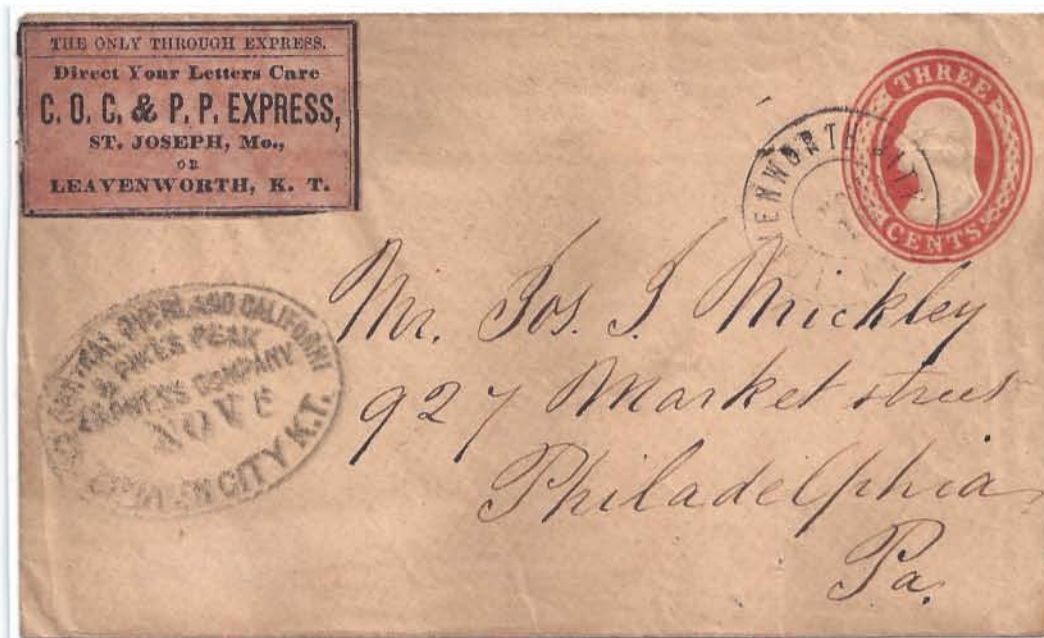 THE ONLY THROUGH EXPRESS.
Direct Your Letters Care
C. O. C. & P. P. EXPRESS,
ST. JOSEPH, Mo.,
OR
LEAVENWORTH, K. T.
THREE
CENTS
CENTRAL OVERLAND CALIFORNI
& PIKES PEAK
EXPRESS COMPANY
NOV 6
CITY K.T.
Mr. Jos. J. Mickley
927 Market street
Philadelphia
Pa.